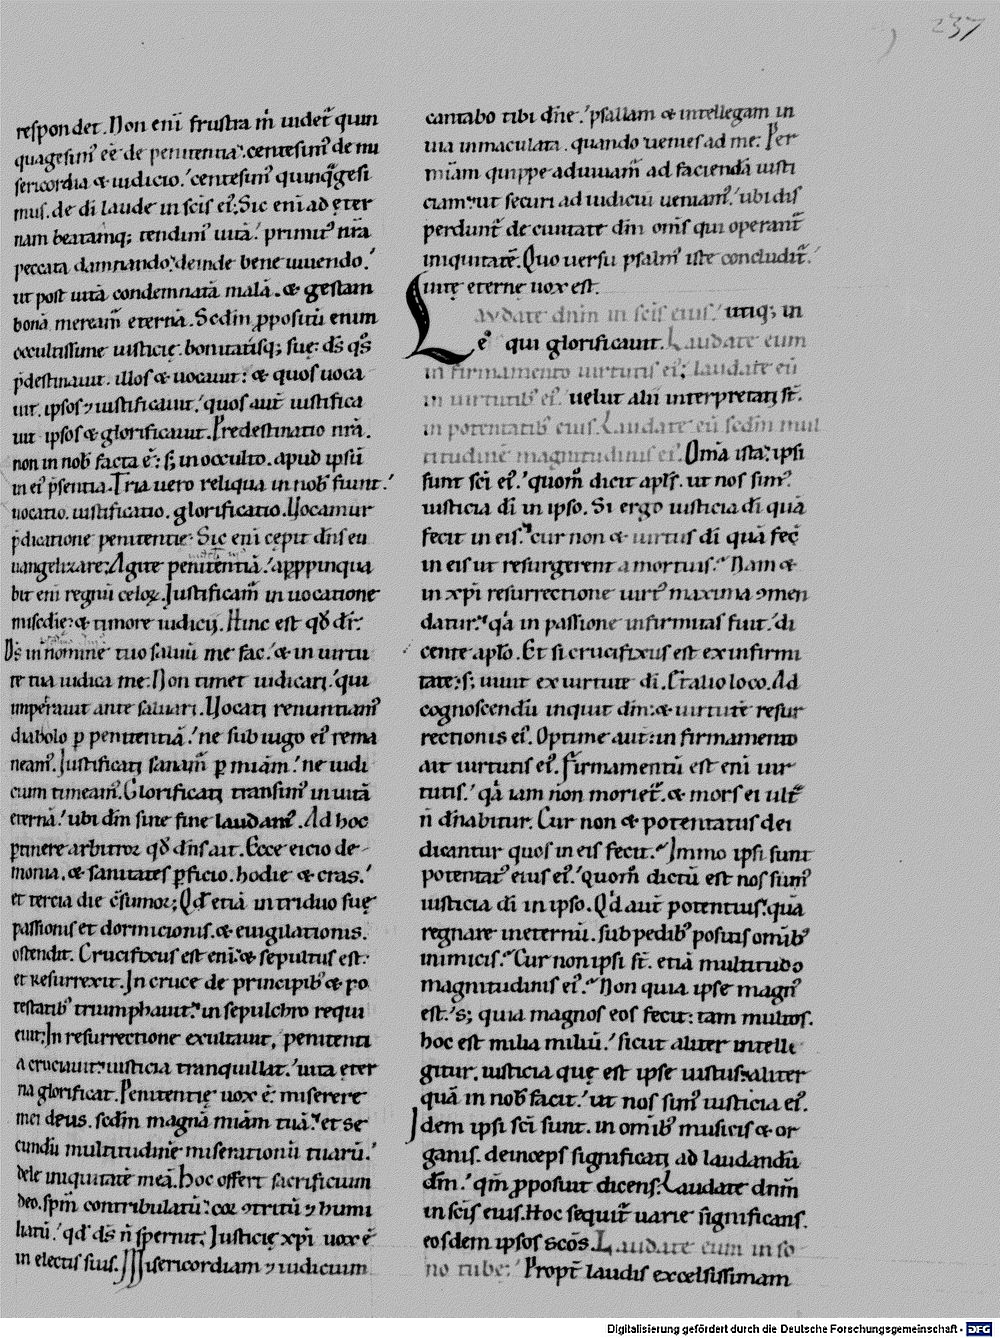 237
respondet. Non eni frustra m̄ uidet̄ quin
quagesim᷒ eē de penitentia. centesim᷒ de mi
sericordia & iudicio. centesim᷒ quinq̄gesi
mus. de di laude in scis ei᷒. Sic eni ad ęter
nam beatamq; tendim᷒ uitā. primit᷒ nr̄a
peccata damnando. deinde bene uiuendo.
ut post uitā condemnatā malā. & gestam
bonā. meream̄ eternā. Sedm̄ ꝓpositū enim
occultissime iusticię. bonitatisq; suę. ds̄ q᷒s
p̄destinauit. illos & uocauit: & quos uoca
uit. ipsos ⁊ iustificauit. quos aut̄ iustifica
uit ipsos & glorificauit. Predestinatio nr̄a.
non in nob̄ facta ē. s; in occulto. apud ipsū
in ei᷒ p̄sentia. Tria uero reliqua in nob̄ fiunt.
uocatio. iustificatio. glorificatio. Uocamur
p̄dicatione penitentie. Sic eni cępit dn̄s eu
uangelizare. Agite penitentiā. apꝓpinqua
bit eni regnū celoꝝ. Justificam̄ in uocatione
misc̄die: & timore iudicij. Hinc est qd̄ dr̄:
Ds̄ in nomine tuo saluū me fac. & in uirtu
te tua iudica me. Non timet iudicari. qui
impet̄uit ante saluari. Uocati renuntiam᷒
diabolo ꝑ penitentiā. ne sub iugo ei᷒ rema
neam᷒. Justificati sanam̄ ꝑ miam̄. ne iudi
cium timeam᷒. Glorificati transim᷒ in uitā
eternā. ubi dm̄ sine fine laudam᷒. Ad hoc
ꝑtinere arbitror qd̄ dn̄s ait. Ecce eicio de
monia. & sanitates ꝑficio. hodie & cras.
et tercia die c̄sumor; Qd̄ etiā in triduo suę
passionis et dormicionis. & euigilationis.
ostendit. Crucifixus est eni. & sepultus est.
et resurrexit. In cruce de principib᷒ & po
testatib᷒ triumphauit. in sepulchro requi
euit. In resurrectione exultauit. penitenti
a cruciauit. iusticia tranquillat. uita ęter
na glorificat. Penitentię uox ē. miserere
mei deus. sedm̄ magnā miam̄ tuā. et se
cundū multitudinē miserationū tuarū.
dele iniquitatē meā. Hoc offert sacrificium
deo. spm̄ contribulatū. cor ↄtritū ⁊ humi
liatū. qd̄ ds̄ n̄ spernit; Justicię xp̄i uox ē
in electis suis. Misericordiam ⁊ iudicium
cantabo tibi dn̄e. psallam & intellegam in
uia inmaculata. quando uenies ad me. Per
miam̄ quippe adiuuam̄ ad faciendā iusti
ciam. ut securi ad iudiciū ueniam᷒. ubi dis
perdunt̄ de ciuitate dn̄i om̄s qui operant̄
iniquitatē. Quo uersu psalm᷒ iste concludit̄.
Uitę eternę uox est.
Laudate dnm̄ in scis eius. utiq; in
e᷒ qui glorificauit. Laudate eum
in firmamento uirtutis ei᷒; laudate eū
in uirtutib᷒ ei᷒. uelut alii interpretati st̄.
in potentatib᷒ eius. Laudate eū sedm̄ mul
titudinē magnitudinis ei᷒. Om̄a ista. ipsi
sunt sci ei᷒. quom̄ dicit apls̄. ut nos sim᷒
iusticia di in ipso. Si ergo iusticia di quā
fecit in eis. cur non & uirtus di quā fec̄
in eis ut resurgerent a mortuis. Nam &
in xp̄i resurrectione uirt᷒ maxima ↄmen
datur. q̄a in passione infirmitas fuit. di
cente aplo. Et si crucifixus est ex infirmi
tate. s; uiuit ex uirtute di. Et alio loco. Ad
cognoscendū inquit dm̄. & uirtutē resur
rectionis ei᷒. Optime aut̄. in firmamento
ait uirtutis ei᷒. Firmamentū est eni uir
tutis. q̄a iam non moriet̄. & mors ei ult̄
n̄ dn̄abitur. Cur non & potentatus dei
dicantur quos in eis fecit. Immo ipsi sunt
potentat᷒ eius ei᷒. quom̄ dictū est nos sum᷒
iusticia di in ipso. Qd̄ aut̄ potentius. quā
regnare in eternū. sub pedib᷒ positis omib᷒
inimicis. Cur non ipsi st̄. etiā multitudo
magnitudinis ei᷒. Non quia ipse magn᷒
est. s; quia magnos eos fecit: tam multos.
hoc est milia miliū. sicut aliter intelli
gitur. iusticia quę est ipse iustus. aliter
quā in nob̄ facit. ut nos sim᷒ iusticia ei᷒.
Idem ipsi sci sunt. in omib᷒ musicis & or
ganis. deinceps significati ad laudandū
dm̄. qm̄ ꝓposuit dicens. Laudate dnm̄
in scis eius. Hoc sequit̄ uarie significans.
eosdem ipsos scōs. Laudate eum in so
no tubę. Propt̄ laudis excelsissimam
Digitalisierung gefördert durch die Deutsche Forschungsgemeinschaft - DFG